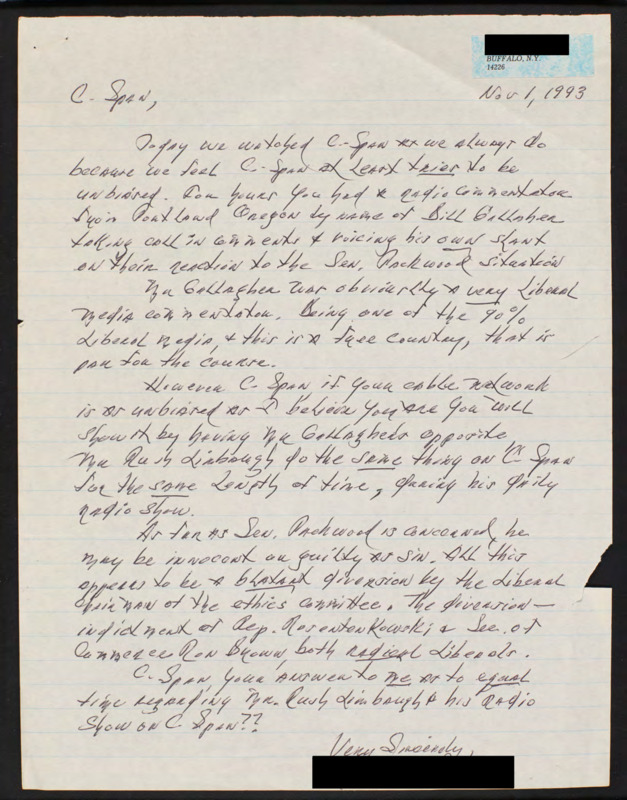 BUFFALO, N.Y.
14226
C-Span,
Nov 1, 1993
Today we watched C-Span as we always do
because we feel C-Span at least tries to be
unbiased. For hours you had a radio commentator
from Portland Oregon by name of Bill Gallagher
taking call in comments & voicing his own slant
on their reaction to the Sen. Packwood situation
Mr Gallagher was obviously a very Liberal
media commentator. Being one of the 90%
Liberal media, & this is a free country, that is
par for the course.
However C-Span if your cable network
is as unbiased as I believe you are you will
show it by having Mr Gallaghers opposite
Mr Rush Limbaugh do the same thing on C-Span
for the same length of time, during his daily
radio show.
As far as Sen. Packwood is concerned, he
may be innocent or guilty as sin. All this
appears to be a blatant diversion by the Liberal
chairman of the ethics committee. The diversion—
indictment of Rep. Rosentenkowski & Sec. of
Commerce Ron Brown, both radical Liberals.
C-Span your answer to me as to equal
time regarding Mr. Rush Limbaugh & his radio
show on C Span??
Very Sincerely,